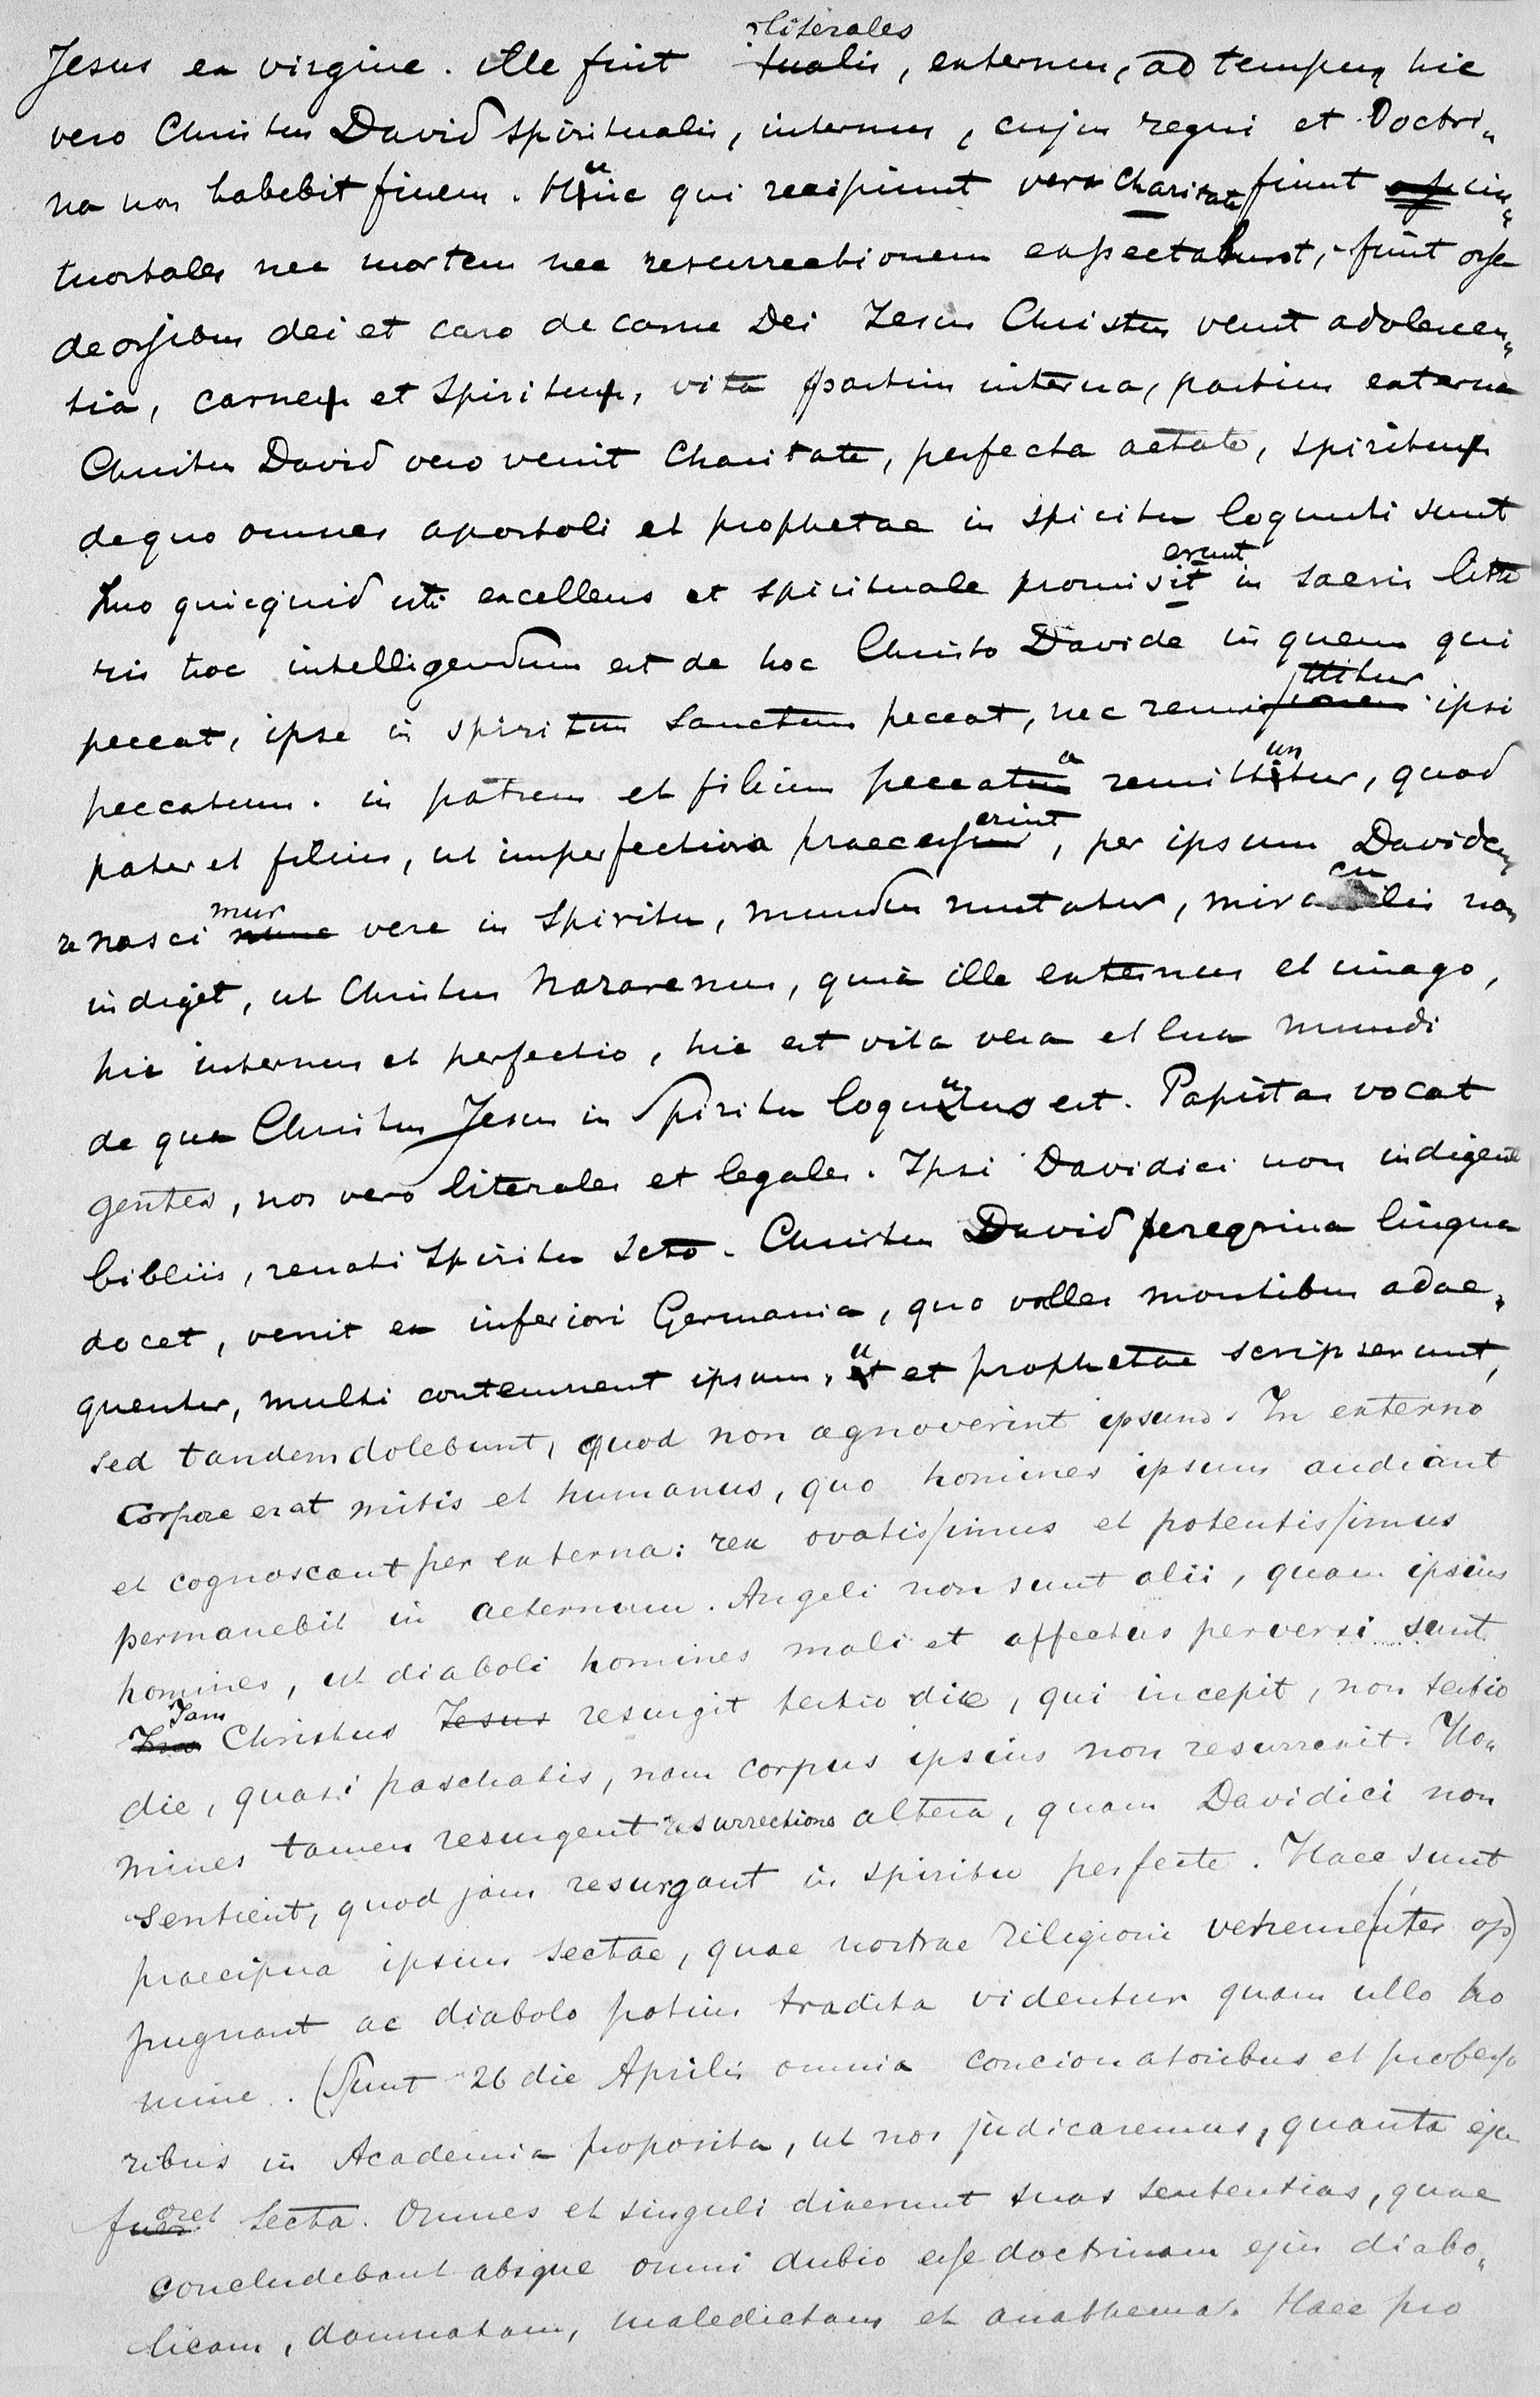 literales
Jesus ex virgine. Ille fuit tualis, externus, ad tempus, hic
vero Christus David spiritualis, internus, cujus regni et Doctri„
na non habebit finem. Hunc qui recipiunt vera charitate fiunt im„
mortales nec mortem nec resurrectionem expectabunt, fiunt osse
de ossibus dei et caro de carne Dei Jesus Christus venit adolescen„
tia, carne et spiritu, vita partim interna, partim externa
Christus David vero venit Charitate, perfecta aetate, spiritu
de quo omnes apostoli et prophetae in spiritu loquuti sunt
erunt
Imo quicquid uti excellens et spirituale promisit in sacris litte
ris hoc intelligendum est de hoc Christo Davide in quem qui
ttitur
peccat, ipse in spiritum sanctum peccat, nec remissionem ipsi
peccatum. in patrem et filium peccata remittuntur, quod
erint
pater et filius, ut imperfectiora praecesser, per ipsum Davidem
mur cu
renasci nunc vere in spiritu, mundus mutatur, miraculis non
indiget, ut Christus Nazarenus, quia ille externus et imago,
hic internus et perfectio, hic est vita vera et lux mundi
de qua Christus Jesus in Spiritu loquutus est. Papistas vocat
gentes, nos vero literales et legales. Ipsi Davidici non indigent
bibliis, renati spiritu scto. Christus David peregrina lingua
docet, venit ex inferiori Germania, quo valles montibus adae„
quentur, multi contemnent ipsum, ut et prophetae scripserunt,
sed tandem dolebunt, quod non agnoverint ipsum. In externo
Corpore erat mitis et humanus, quo homines ipsum audiant
et cognoscant per externa: rex ovatissimus et potentissimus
permanebit in aeternum. Angeli non sunt alii, quam ipsius
homines, ut diaboli homines mali et affectus perversi sunt
Jam
Christus Jesus resurgit tertio die, qui incepit, non tertio
die, quasi paschatis, nam corpus ipsius non resurrexit. Ho„
mines tamen resurgent resurrectione altera, quam Davidici non
sentient, quod jam resurgant in spiritu perfecte. Haec sunt
praecipua ipsius sectae, quae nostrae religioni vehementer op)
pugnant ac diabolo potius tradita videntur quam ullo ho
mine. (Sunt 26 die Aprilis omnia concionatoribus et professo
ribus in Academia proposita, ut nos judicaremus, quanta ejus
oret
fuer secta. Omnes et singuli dixerunt suas sententias, quae
concludebant absque omni dubio esse doctrinam ejus diabo„
licam, damnatam, maledictam et anathema. Haec pro